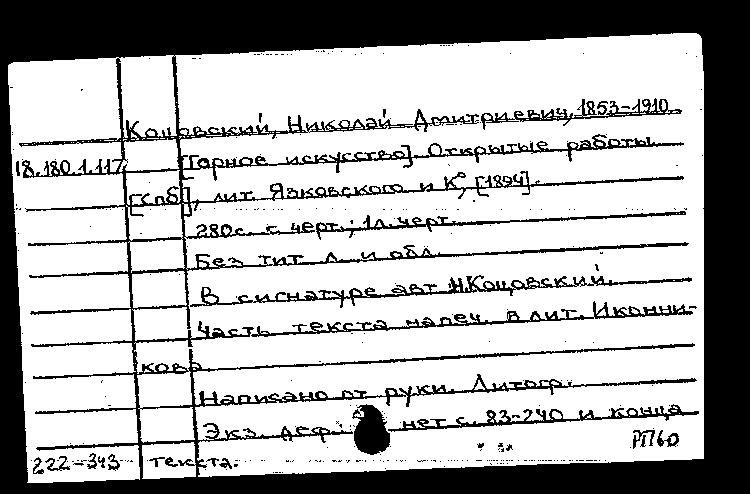 Коцовский, Николай Дмитриевич, 1853-1910.
18.180.1.117 [Горное искусство]. Открытые работы.
[Спб], лит. Язковского и К°, [1894].
280с. с черт.; 1л. черт.
Без тит. л. и обл.
В сигнатуре авт. Н.Коцовский.
Часть текста напеч. в лит. Иконни-
кова.
Написано от руки. Литогр.
Экз. деф.: нет с. 83-240 и конца
222-343 текста. РТП60